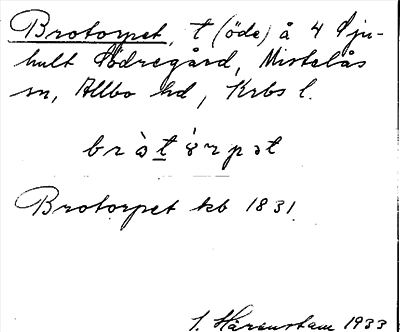 Brotorpet, t (öde) å 4 Sju-
hult Södregård, Mistelås
sn, Allbo hd, Krbs l.
brὰt ɤ́rpət
Brotorpet kb 1831
Härenstam 1933